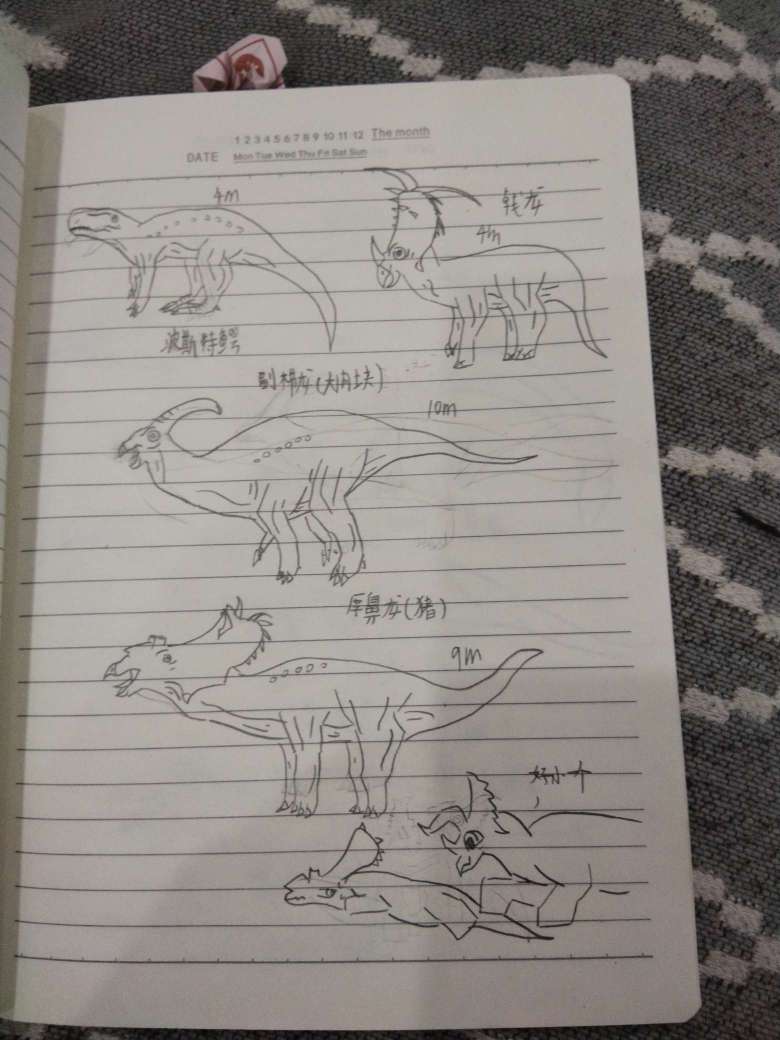 1 2 3 4 5 6 7 8 9 10 11 12 The month
DATE Mon Tue Wed Thu Fri Sat Sun
4m
钱龙
4m
波斯特鳄
副栉龙(大肉块)
10m
厚鼻龙(猪)
9m
好小个